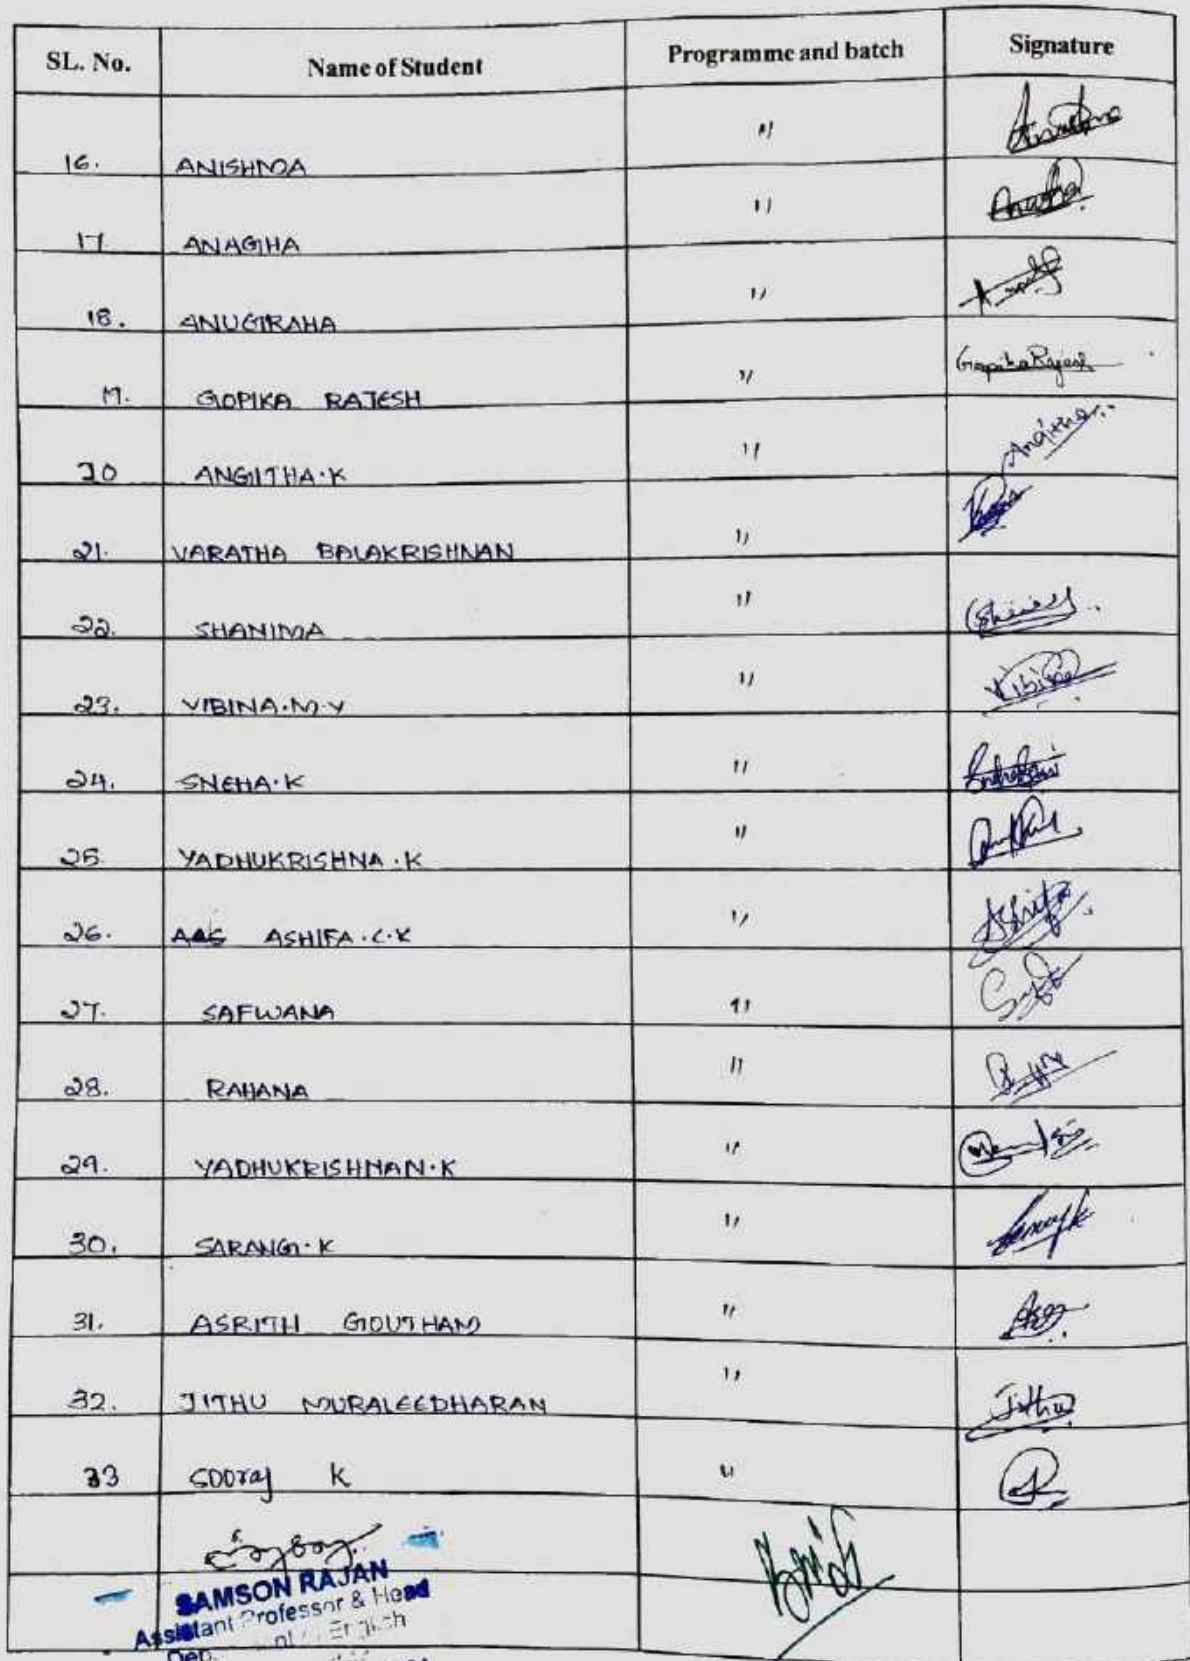 SL. No. Name of Student Programme and batch Signature
16. ANISHMA "
17 ANAGHA " Anagha
18. ANUGRAHA "
19. GOPIKA RAJESH " Gopika Rajesh
20 ANGITHA.K " Angitha
21. VARATHA BALAKRISHNAN "
22. SHANIMA "
23. VIBINA.M.V " Vibina
24. SNEHA.K "
25 YADHUKRISHNA.K "
26. ASHIFA.C.K " Ashifa
27. SAFWANA "
28. RAHANA "
29. YADHUKRISHNAN.K "
30. SARANG.K "
31. ASRITH GOUTHAM "
32. JITHU MURALEEDHARAN " Jithu
33 Sooraj K "
SAMSON RAJAN
Assistant Professor & Head
English